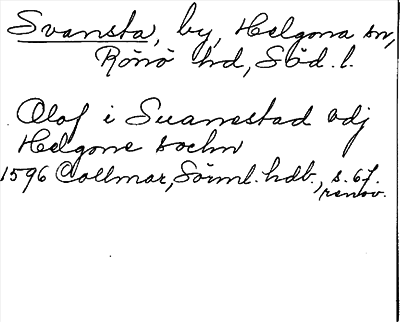 Svansta, by, Helgona sn,
Rönö hd, Söd. l.
Olof i Suanestad vdj
Helgone sochn
1596 Collmar, Sörml. hdb., s. 67.
renov.